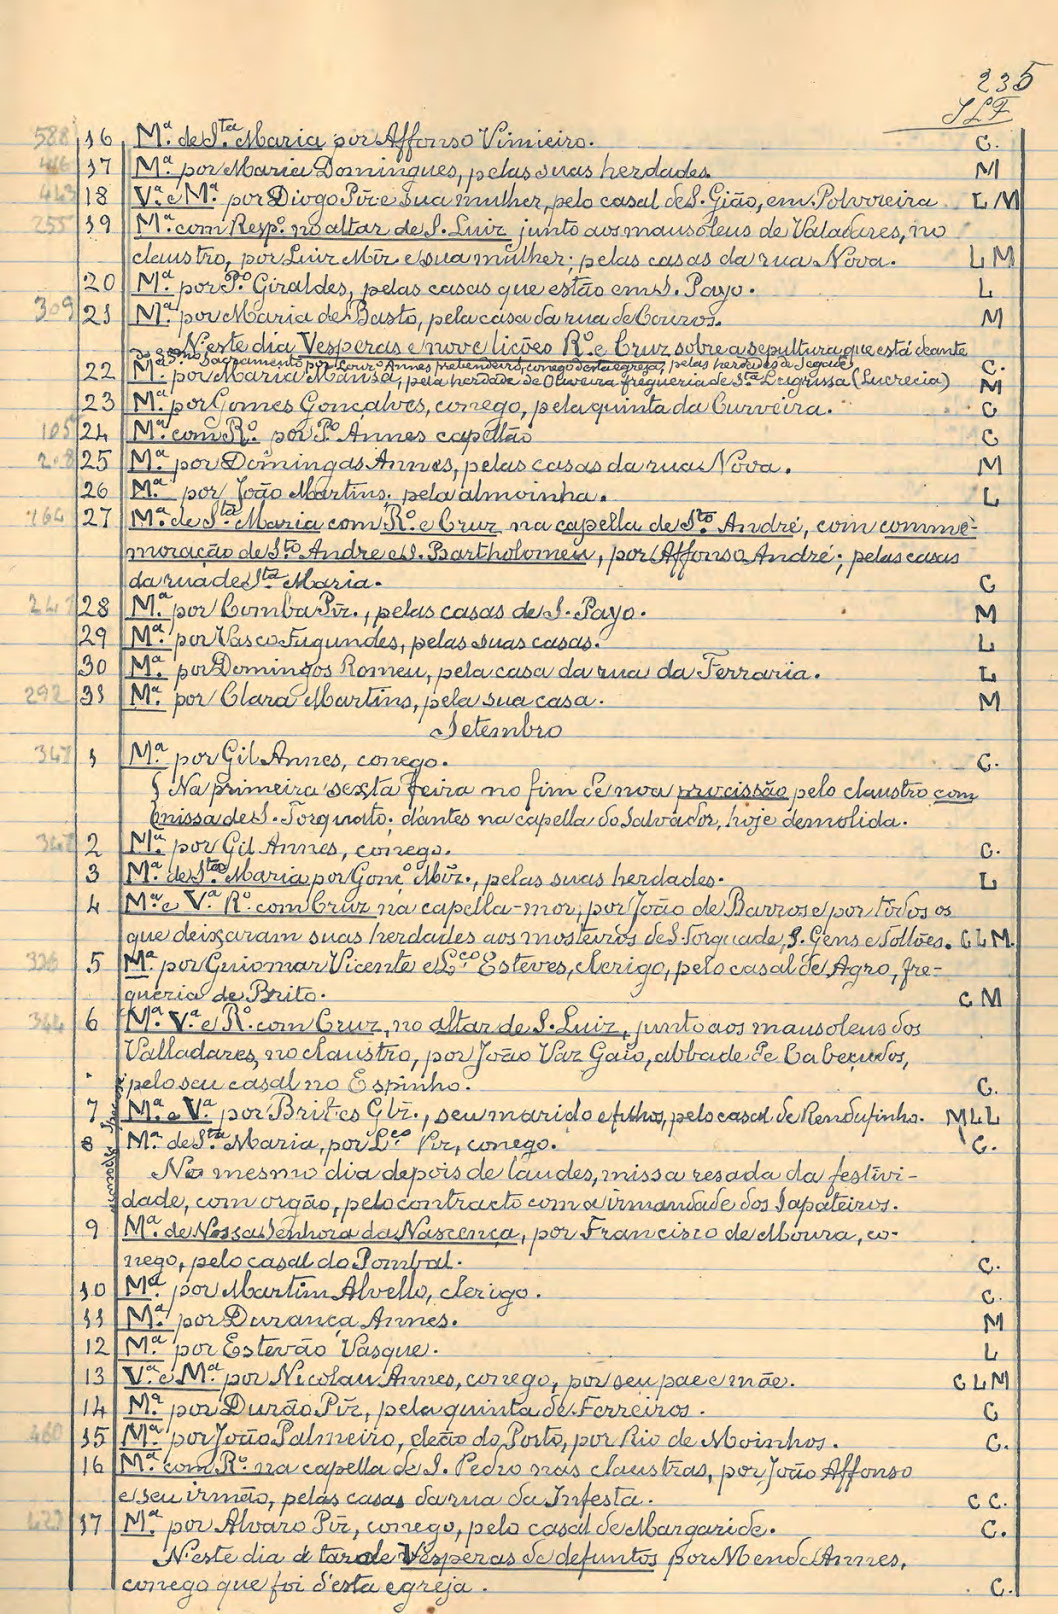 235
JLF
588 16 Mª. de Sta. Maria por Affonso Vimieiro. C.
446 17 Mª. por Maria Domingues, pelas suas herdades. M
443 18 Vª. e Mª. por Diogo Pir̃ e sua mulher, pelo casal de S. Gião, em Polvoreira L/M
255 19 Mª. com Respº. no altar de S. Luiz junto aos mausoleus de Valadares, no
claustro, por Luiz Mir̃ e sua mulher; pelas casas da rua Nova. L M
20 Mª. por Pº. Giraldes, pelas casas que estão em S. Payo. L
309 21 Mª. por Maria de Basto, pela casa da rua de Couros. M
N'este dia Vesperas e nove lições Rº. e Cruz sobre a sepultura que está deante
do Ssmo. Sacramento por Lourº. Annes prebendeiro, conego desta egreja, pelas herdades de Segade C.
22 Mª. por Maria Mansa, pela herdade de Oliveira fregueria de Sta. Lugrissa (Lucrecia) M
23 Mª. por Gomes Gonçalves, conego, pela quinta da Curveira. C
105 24 Mª. com Rº. por Pº. Annes capellão C
208 25 Mª. por Domingas Annes, pelas casas da rua Nova. M
26 Mª. por João Martins, pela almoinha. L
164 27 Mª. de Sta. Maria com Rº. e Cruz na capella de Sto. André, com comme-
moração de Sto. André e S. Bartholomeu, por Affonso André; pelas casas
da rua de Sta. Maria. C
247 28 Mª. por Comba Pir̃., pelas casas de S. Payo. M
29 Mª. por Vasco Fugundes, pelas suas casas. L
30 Mª. por Domingos Romeu, pela casa da rua da Ferraria. L
292 31 Mª. por Clara Martins, pela sua casa. M
Setembro
347 1 Mª. por Gil Annes, conego. C.
Na primeira sexta feira no fim de noa procissão pelo claustro com
missa de S. Torquato; d'antes na capella do Salvador, hoje demolida.
347 2 Mª. por Gil Annes, conego. C.
3 Mª. de Sta. Maria por Gonçº. Mir̃., pelas suas herdades. L
4 Mª. e Vª. Rº. com Cruz na capella-mor; por João de Barros e por todos os
que deixaram suas herdades aos mosteiros de S. Torquade, S. Gens e Solloes. C L M.
5 Mª. por Guiomar Vicente e Lco. Esteves, clerigo, pelo casal de Agro, fre-
gueria de Brito. C M
344 6 Mª. Vª. e Rº. com Cruz, no altar de S. Luiz, junto aos mausoleus dos
Valladares, no claustro, por João Vaz Gaio, abbade de Cabeçudos,
pelo seu casal no Espinho. C.
7 Mª. e Vª. por Brites Glz̃., seu marido e filhos, pelo casal de Rendufinho. M L L
8 Mª. de Sta. Maria, por Lco. Pir̃, conego. C.
No mesmo dia depois de laudes, missa resada da festivi-
dade, com orgão, pelo contracto com a irmandade dos Sapateiros.
9 Mª. de Nossa Senhora da Nascença, por Francisco de Moura, co-
nego, pelo casal do Pombal. C.
10 Mª. por Martim Alvello, clerigo. C.
11 Mª. por Durança Annes. M
12 Mª. por Estevão Vasque. L
13 Vª. e Mª. por Nicolau Annes, conego, por seu pae e mãe. C L M
14 Mª. por Durão Pir̃, pela quinta de Ferreiros. C
460 15 Mª. por João Palmeiro, deão do Porto, por Rio de Moinhos. C.
16 Mª. com Rº. na capella de S. Pedro nas claustras, por João Affonso
e seu irmão, pelas casas da rua da Infesta. C C.
17 Mª. por Alvaro Pir̃, conego, pelo casal de Margaride. C.
N'este dia á tarde Vesperas de defuntos por Mende Annes,
conego que foi d'esta egreja. C.